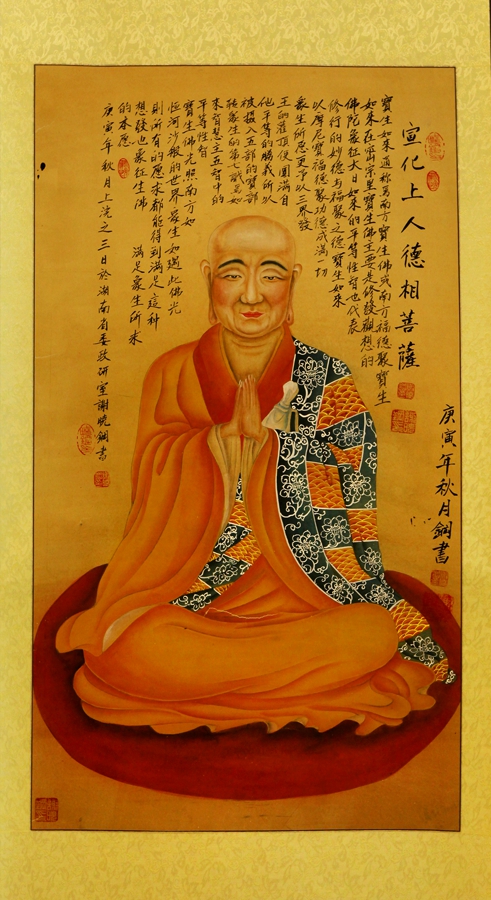 宣化上人德相菩薩
庚寅年秋月鋼書
寶生如來通稱為南方寶生佛或南方福德聚寶生
如來在密宗里寶生佛主要是修發觀想的
佛陀象征大日如來的平等性智也代表
修行的妙德与福聚之德寶生如來
以摩尼寶福德聚功德成滿一切
眾生所愿更予以三界設
王的灌頂使圓滿自
他平等的勝義所以
被摄入五部的寶部
能眾生的第七識為如
來智慧主五智中的
平等性智
寶生佛光照南方如
恒河沙般的世界眾生如遇此佛光
則所有的愿求都能得到滿足這种
想發也象征生佛 滿足眾生所求
的本愿
庚寅年秋月上浣之三日於湖南省委政研室謝曉鋼書